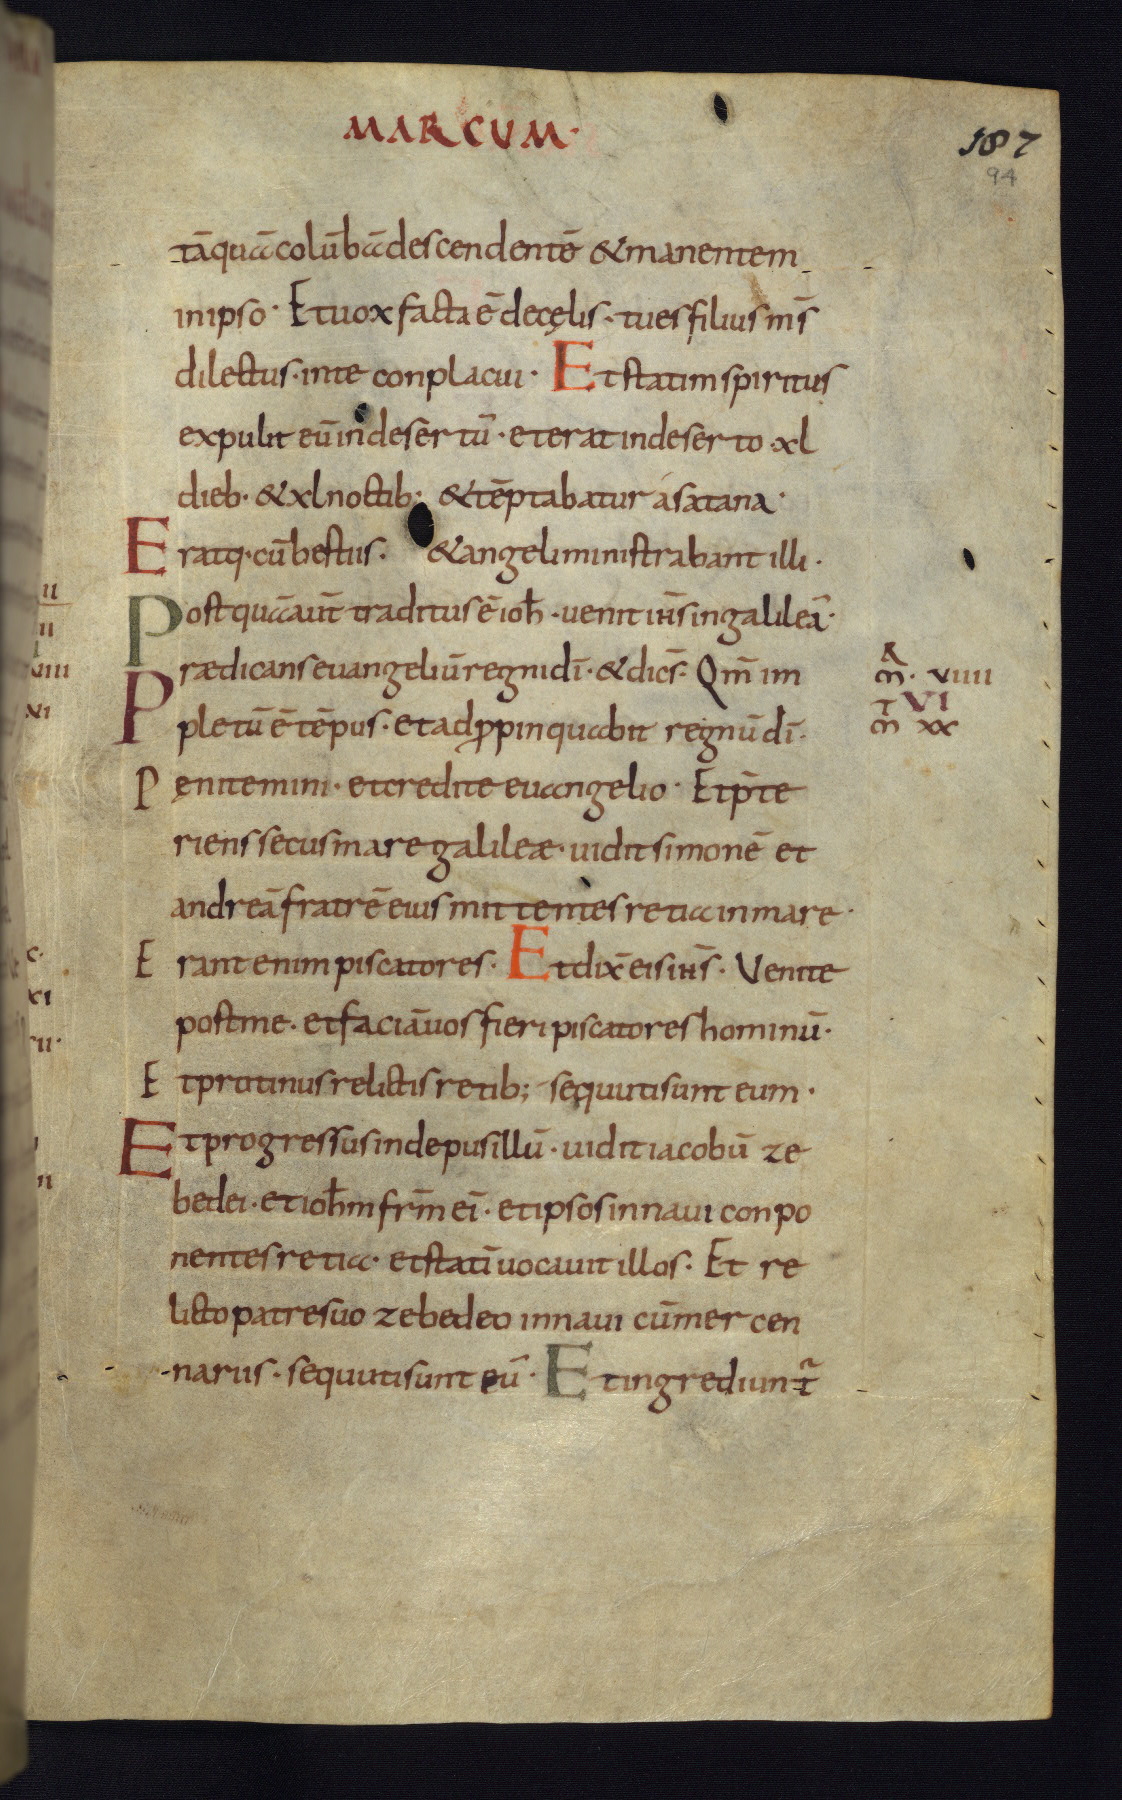 MARCUM·
187
94
tā quā colūbā descendentē & manentem
in ipso· Et uox facta ē de cęlis· tu es filius ms̄
dilectus· in te conplacui· Et statim spiritus
expulit eū in desertū· et erat in deserto· xl
dieb· & xl noctib; & tēptabatur a satana·
Eratq· cū bestiis· & angeli ministrabant illi·
Post quā aut̄ traditus ē ioh̄· uenit ih̄s in galileā·
Prædicans euangeliū regni dī· & dics̄· Qm̄ im
pletū ē tēpus· et adpropinquabit regnū dī·
Pęnitemini· et credite euangelio· Et p̄te
riens secus mare galileæ· uidit simonē et
andreā fratrē eius mittentes retia in mare·
Erant enim piscatores· Et dix̄ eis ih̄s· Venite
post me· et faciā uos fieri piscatores hominū·
Et protinus relictis retib; sequuti sunt eum·
Et progressus inde pusillū· uidit iacobū ze
bedei· et ioh̄m frm̄ eī· et ipsos in naui conpo
nentes retia· et statī uocauit illos· Et re
licto patre suo zebedeo in naui cū mercen
nariis· sequuti sunt eū· Et ingrediunt̄
A
m̄· VIIII
T VI
m̄ XX